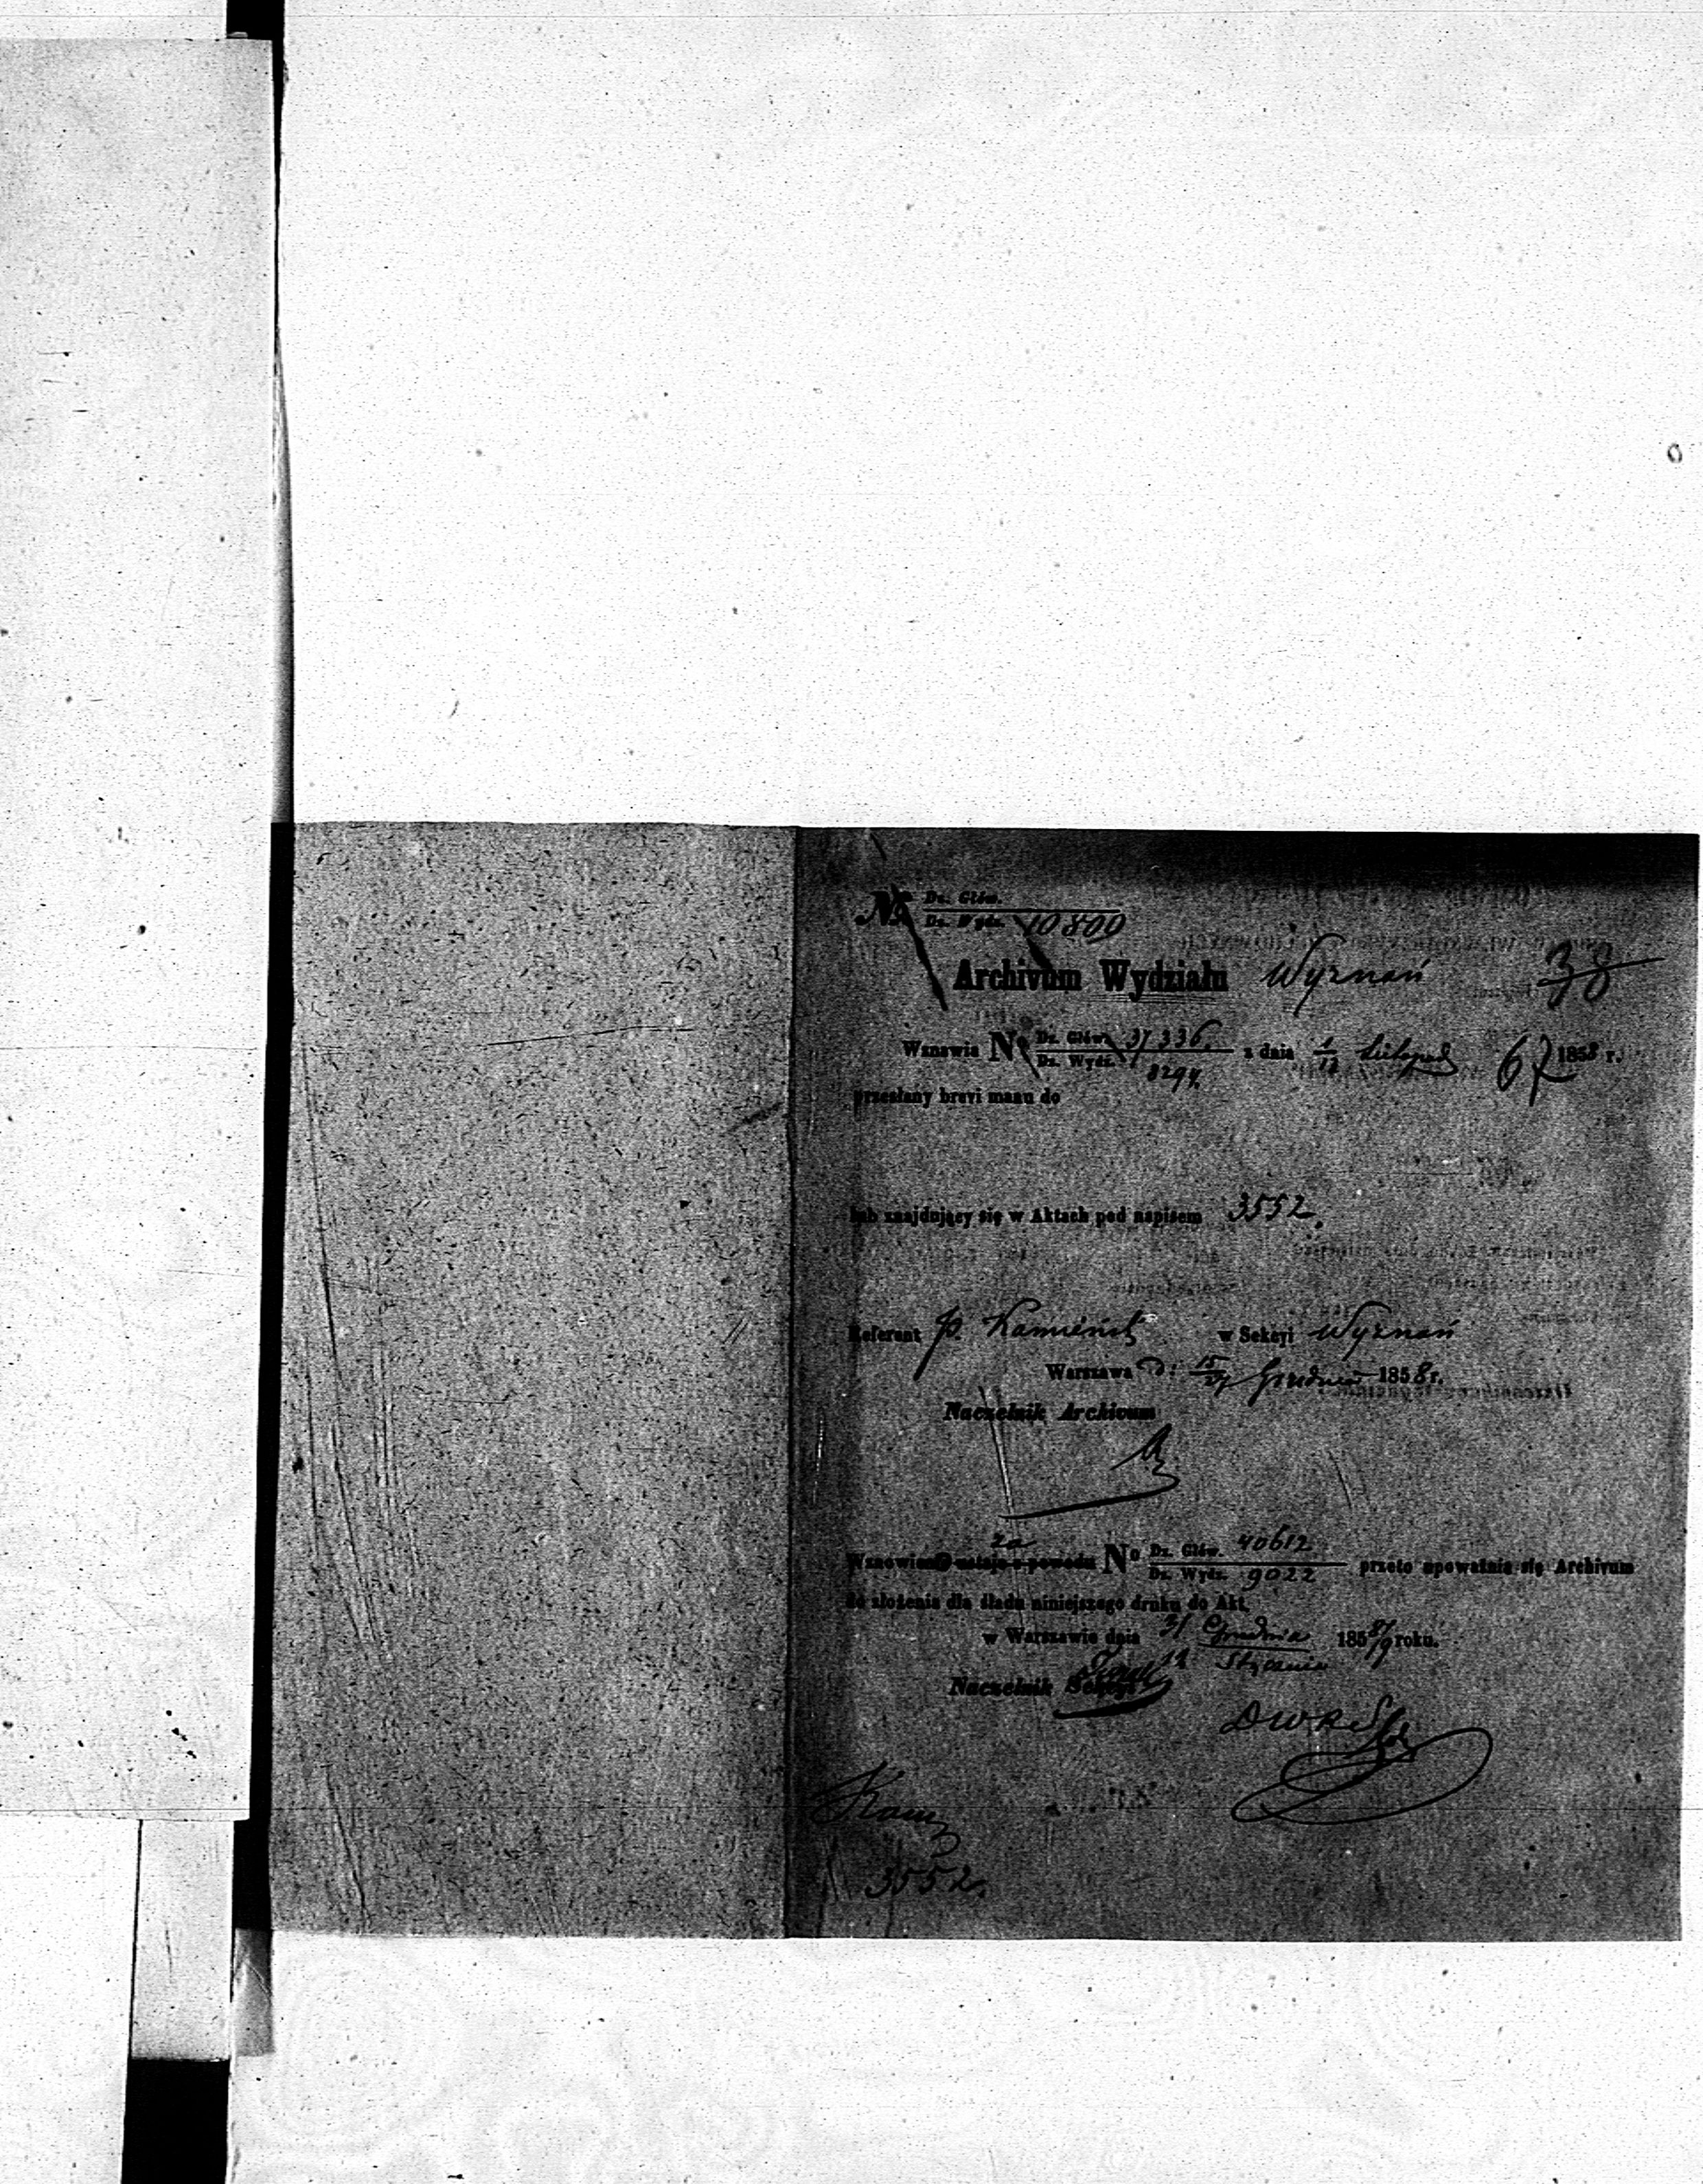 No Dz. Głów.
Dz. Wydz. 10800
Archivum Wydziału Wyznań 38
Wznawia No Dz. Głów. 37336. z dnia 1/13 Listopad 1858 r. 67
Dz. Wydz. 8294.
przesłany brevi manu do
lub znajdujący się w Aktach pod napisem 3552.
Referent P. Kamieński w Sekcyi Wyznań
Warszawa d: 15/27 Grudnia 1858 r.
Naczelnik Archivum
za
Wznowienie ustaje z powodu No Dz. Głów. 40612 przeto upoważnia się Archivum
Dz. Wydz. 9022
do złożenia dla śladu niniejszego druku do Akt.
w Warszawie dnia 31 Grudnia 1858/9 roku.
12 Stycznia
Naczelnik Sekcyi
Kam
3552.